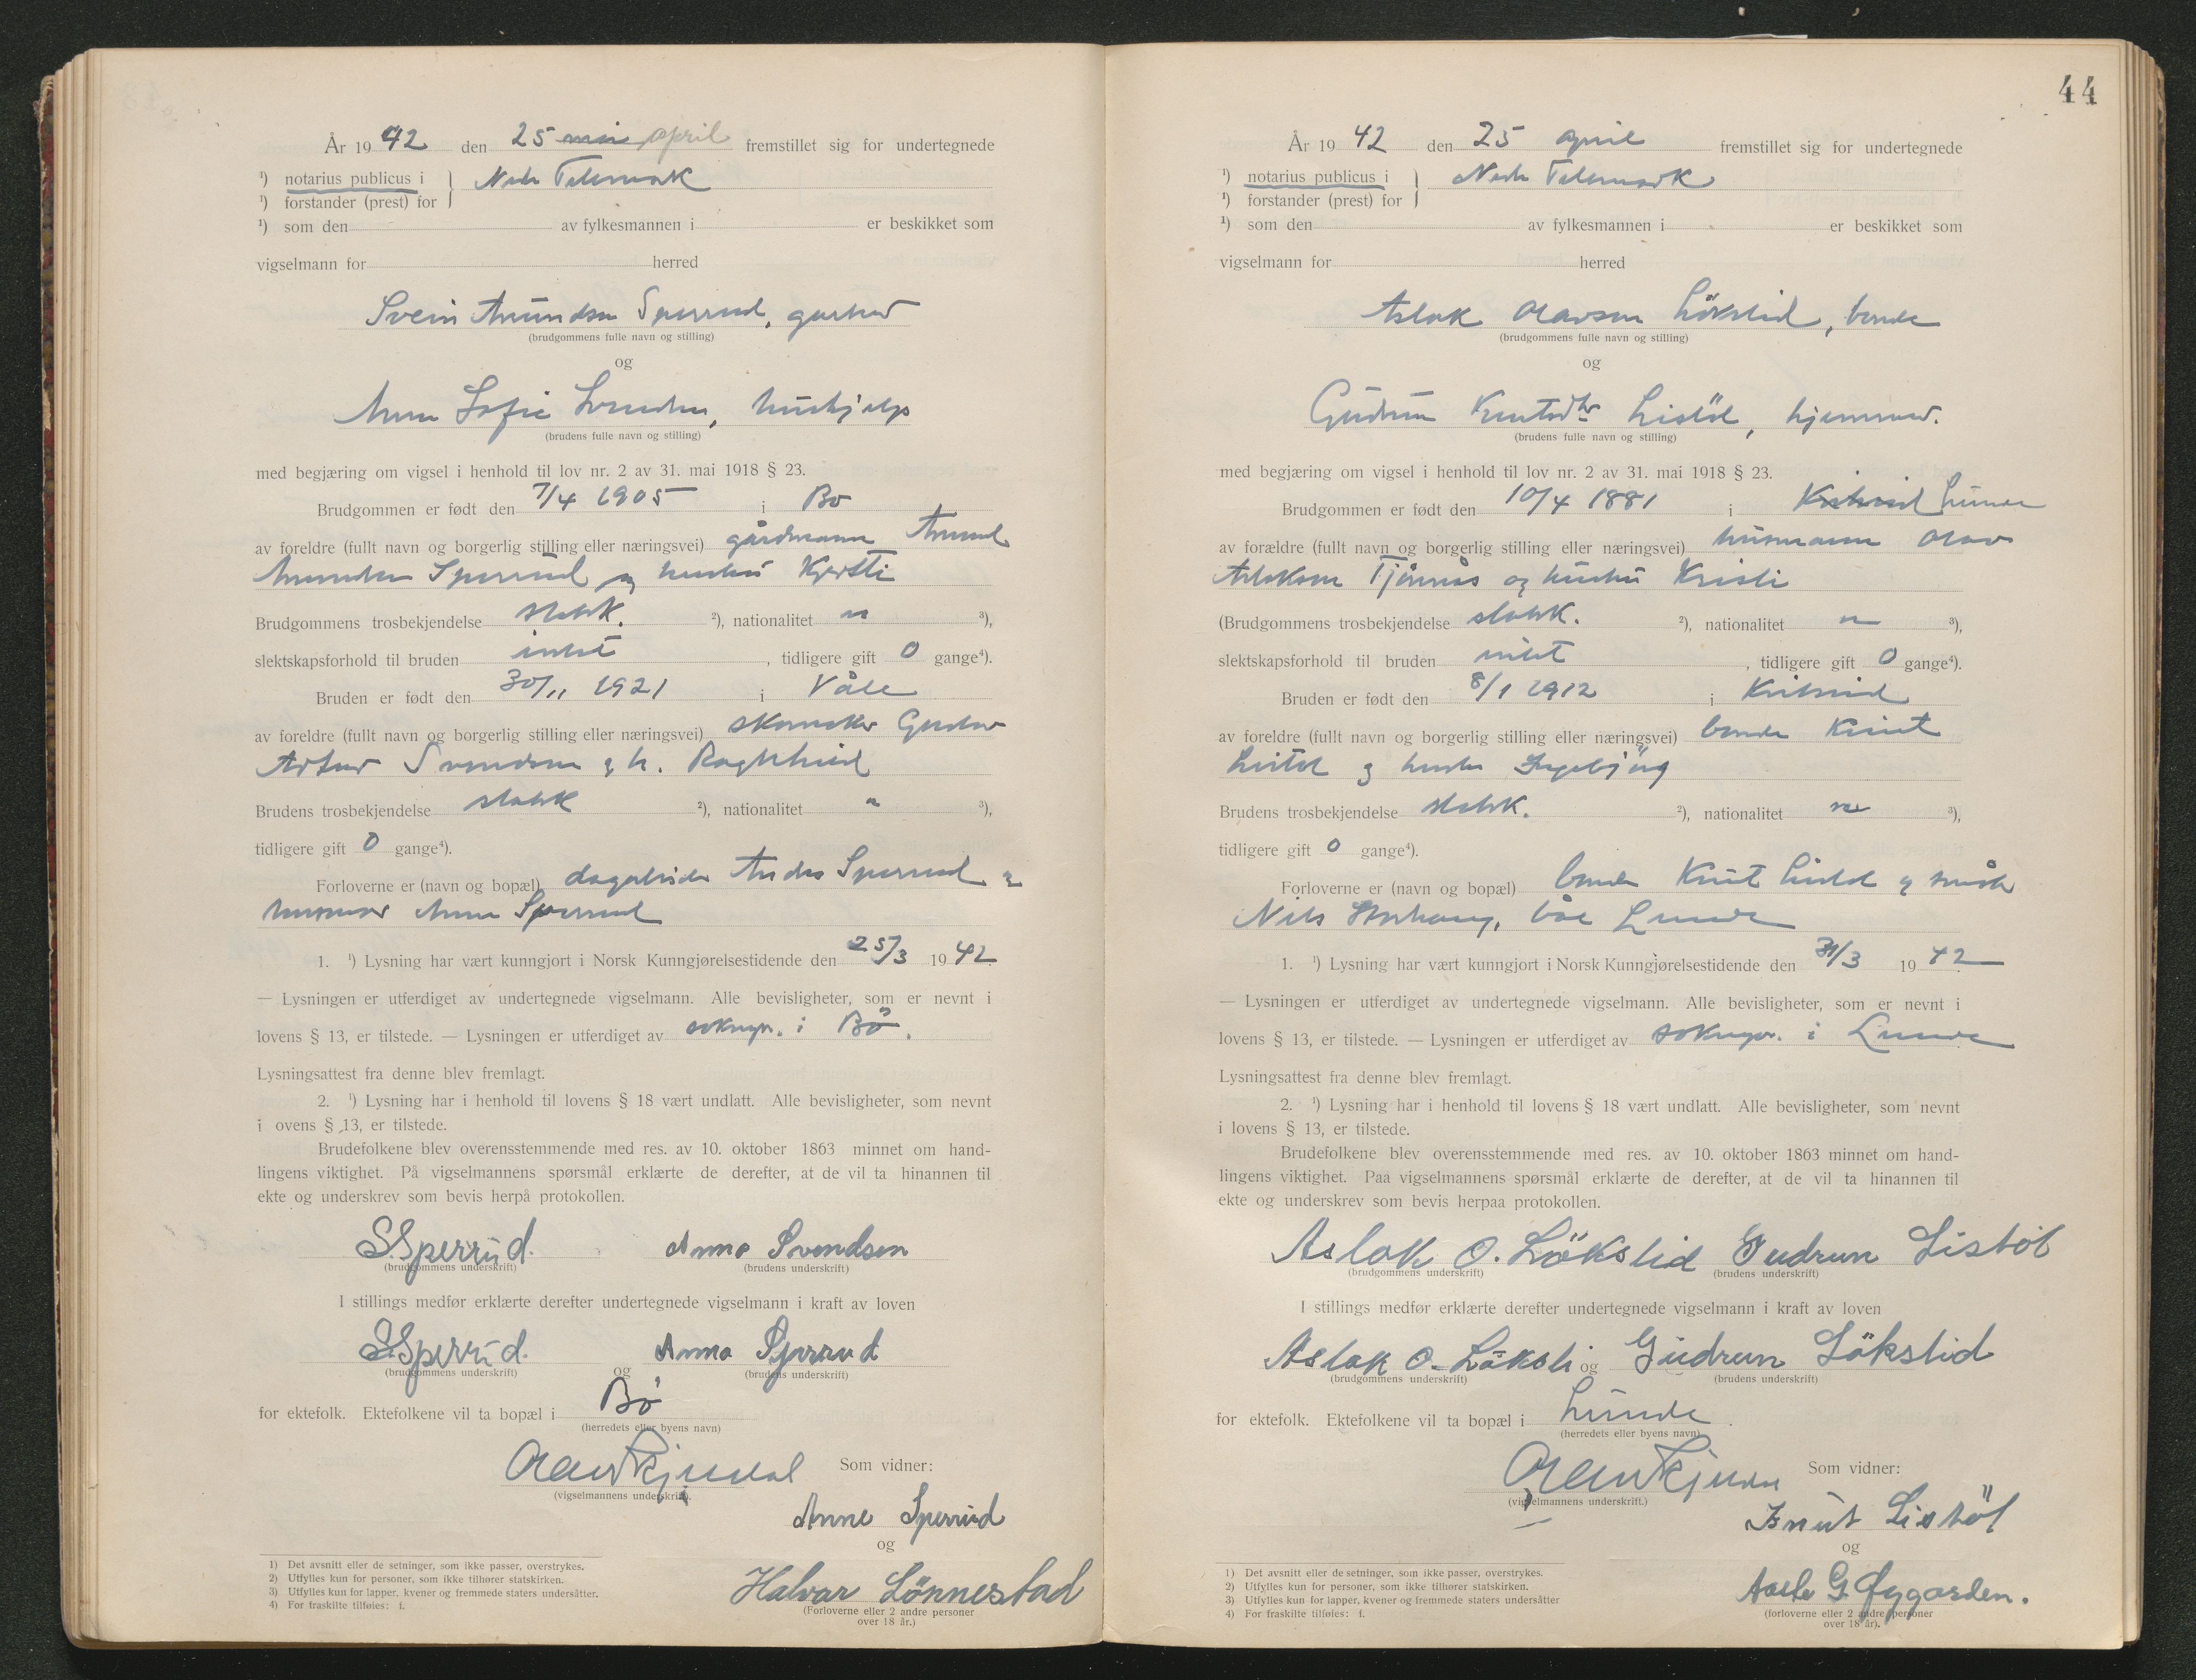 År 1942 den 25 mai april fremstillet sig for undertegnede
¹) notarius publicus i } Nedre Telemark
¹) forstander (prest) for
¹) som den av fylkesmannen i er beskikket som
vigselmann for herred
Svein Amundsen Sperrud, gartner
(brudgommens fulle navn og stilling)
og
Anna Sofie Svendsen, hushjelp
(brudens fulle navn og stilling)
med begjæring om vigsel i henhold til lov nr. 2 av 31. mai 1918 § 23.
Brudgommen er født den 7/4 1905 i Bø
av foreldre (fullt navn og borgerlig stilling eller næringsvei) gårdmann Amund
Amundsen Sperrud og hustru Kjersti
Brudgommens trosbekjendelse statsk. ²), nationalitet n ³),
slektskapsforhold til bruden intet, tidligere gift 0 gange⁴).
Bruden er født den 30/11 1921 i Våle
av foreldre (fullt navn og borgerlig stilling eller næringsvei) skomaker Gustav
Artur Svendsen og h. Ragnhild
Brudens trosbekjendelse statsk ²), nationalitet n ³),
tidligere gift 0 gange⁴).
Forloverne er (navn og bopæl) Sperrud og
Anne Sperrud
1. ¹) Lysning har vært kunngjort i Norsk Kunngjørelsestidende den 25/3 1942.
— Lysningen er utferdiget av undertegnede vigselmann. Alle bevisligheter, som er nevnt i
lovens § 13, er tilstede. — Lysningen er utferdiget av soknepr. i Bø.
Lysningsattest fra denne blev fremlagt.
2. ¹) Lysning har i henhold til lovens § 18 vært undlatt. Alle bevisligheter, som nevnt
i ovens § 13, er tilstede.
Brudefolkene blev overensstemmende med res. av 10. oktober 1863 minnet om hand-
lingens viktighet. På vigselmannens spørsmål erklærte de derefter, at de vil ta hinannen til
ekte og underskrev som bevis herpå protokollen.
S. Sperrud. Anna Svendsen
(brudgommens underskrift) (brudens underskrift)
I stillings medfør erklærte derefter undertegnede vigselmann i kraft av loven
S. Sperrud. og Anna Sperrud
(brudgommens underskrift) (brudens underskrift)
for ektefolk. Ektefolkene vil ta bopæl i Bø
(herredets eller byens navn)
Som vidner:
(vigselmannens underskrift).
Anne Sperrud
og
Halvor Lönnestad
(Forloverne eller 2 andre personer
over 18 år.)
1) Det avsnitt eller de setninger, som ikke passer, overstrykes.
2) Utfylles kun for personer, som ikke tilhører statskirken.
3) Utfylles kun for lapper, kvener og fremmede staters undersåtter.
4) For fraskilte tilføies: f.
44
År 1942 den 25 april fremstillet sig for undertegnede
¹) notarius publicus i } Nedre Telemark
¹) forstander (prest) for
¹) som den av fylkesmannen i er beskikket som
vigselmann for herred
Aslak Olavson Lökslid, bonde
(brudgommens fulle navn og stilling)
og
Gudrun Knutsdtr Listöl, hjemmev.
(brudens fulle navn og stilling)
med begjæring om vigsel i henhold til lov nr. 2 av 31. mai 1918 § 23.
Brudgommen er født den 10/4 1881 i Kviteseid Lunde
av forældre (fullt navn og borgerlig stilling eller næringsvei) husmann Olav
Aslakson Tjönnås og hustru Kristi
(Brudgommens trosbekjendelse statsk. ²), nationalitet n ³),
slektskapsforhold til bruden intet, tidligere gift 0 gange⁴).
Bruden er født den 8/1 1912 i Kviteseid
av foreldre (fullt navn og borgerlig stilling eller næringsvei) bonde Knut
Listöl og hustru Ingebjörg
Brudens trosbekjendelse statsk. ²), nationalitet n ³),
tidligere gift 0 gange⁴).
Forloverne er (navn og bopæl) bonde Knut Listöl og
Nils Lunde
1. ¹) Lysning har vært kunngjort i Norsk Kunngjørelsestidende den 31/3 1942
— Lysningen er utferdiget av undertegnede vigselmann. Alle bevisligheter, som er nevnt i
lovens § 13, er tilstede. — Lysningen er utferdiget av soknepr. i Lunde
Lysningsattest fra denne blev fremlagt.
2. ¹) Lysning har i henhold til lovens § 18 vært undlatt. Alle bevisligheter, som nevnt
i lovens § 13, er tilstede.
Brudefolkene blev overensstemmende med res. av 10. oktober 1863 minnet om hand-
lingens viktighet. Paa vigselmannens spørsmål erklærte de derefter, at de vil ta hinannen til
ekte og underskrev som bevis herpaa protokollen.
Aslak O. Lökslid Gudrun Listöl
(brudgommens underskrift) (brudens underskrift)
I stillings medfør erklærte derefter undertegnede vigselmann i kraft av loven
Aslak O. Löksli og Gudrun Lökslid
(brudgommens underskrift) (brudens underskrift)
for ektefolk. Ektefolkene vil ta bopæl i Lunde.
(herredets eller byens navn)
Som vidner:
(vigselmannens underskrift.)
Knut Listöl
og
G. Øygarden.
(forloverne eller 2 andre personer
over 18 år).
1) Det avsnitt eller de setninger, som ikke passer, overstrykes.
2) Utfylles kun for personer, som ikke tilhører statskirken.
3) Utfylles kun for lapper, kvener og fremmede staters undersåtter
4) For fraskilte tilføies: f.